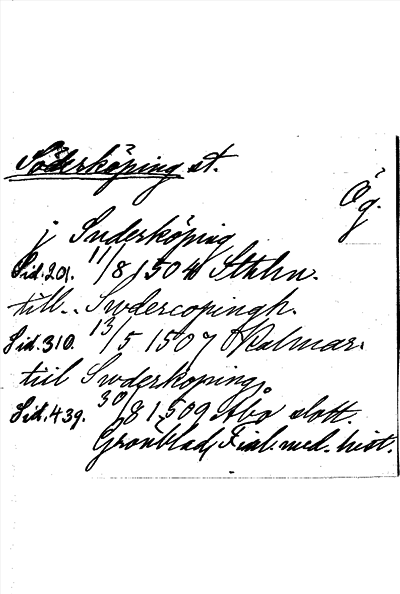 Söderköping st.
Ög.
j Suderköping
Sid. 201. 11/8 1504 Sthlm.
till.. Swdercopingh.
Sid. 310. 13/5 1507 Kalmar.
till Swderkoping,
Sid. 439. 30/8 1509 Åbo slott.
Grönblad, Finl. med. hist.